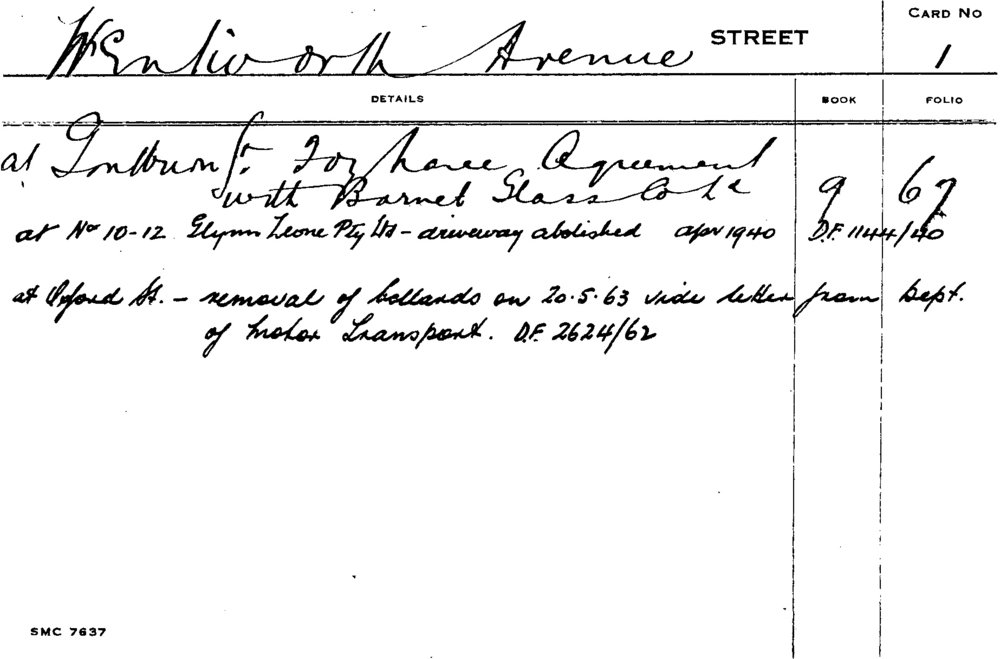 Wentworth Avenue STREET CARD NO 1
DETAILS BOOK FOLIO
at Goulburn St. Agreement
with Barnet Glass Co Ld 9 67
at No 10-12 Glynn Leone Pty Ltd - driveway abolished apr 1940 D.F. 1144/40
at Oxford St. - removal of bollards on 20.5.63 vide letter from Dept.
of Motor Transport. D.F. 2624/62
SMC 7637